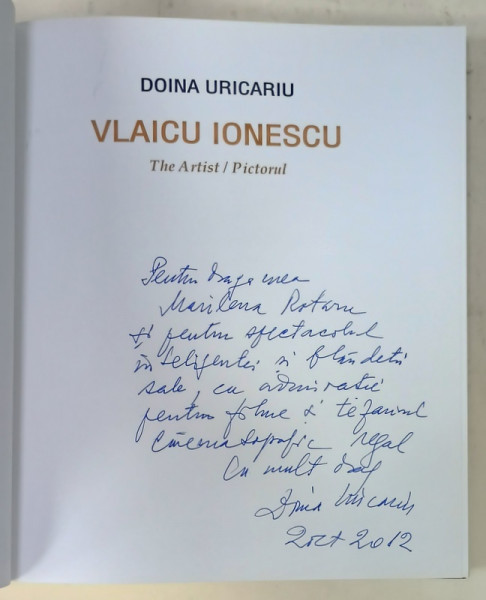 DOINA URICARIU
VLAICU IONESCU
The Artist / Pictorul
Pentru draga mea
Marilena Rotaru
și pentru spectacolul
inteligenței și blândeții
sale, cu admirație
pentru filme și tezaurul
cinematografic regal
Cu mult drag
Doina Uricariu
2 oct 2012